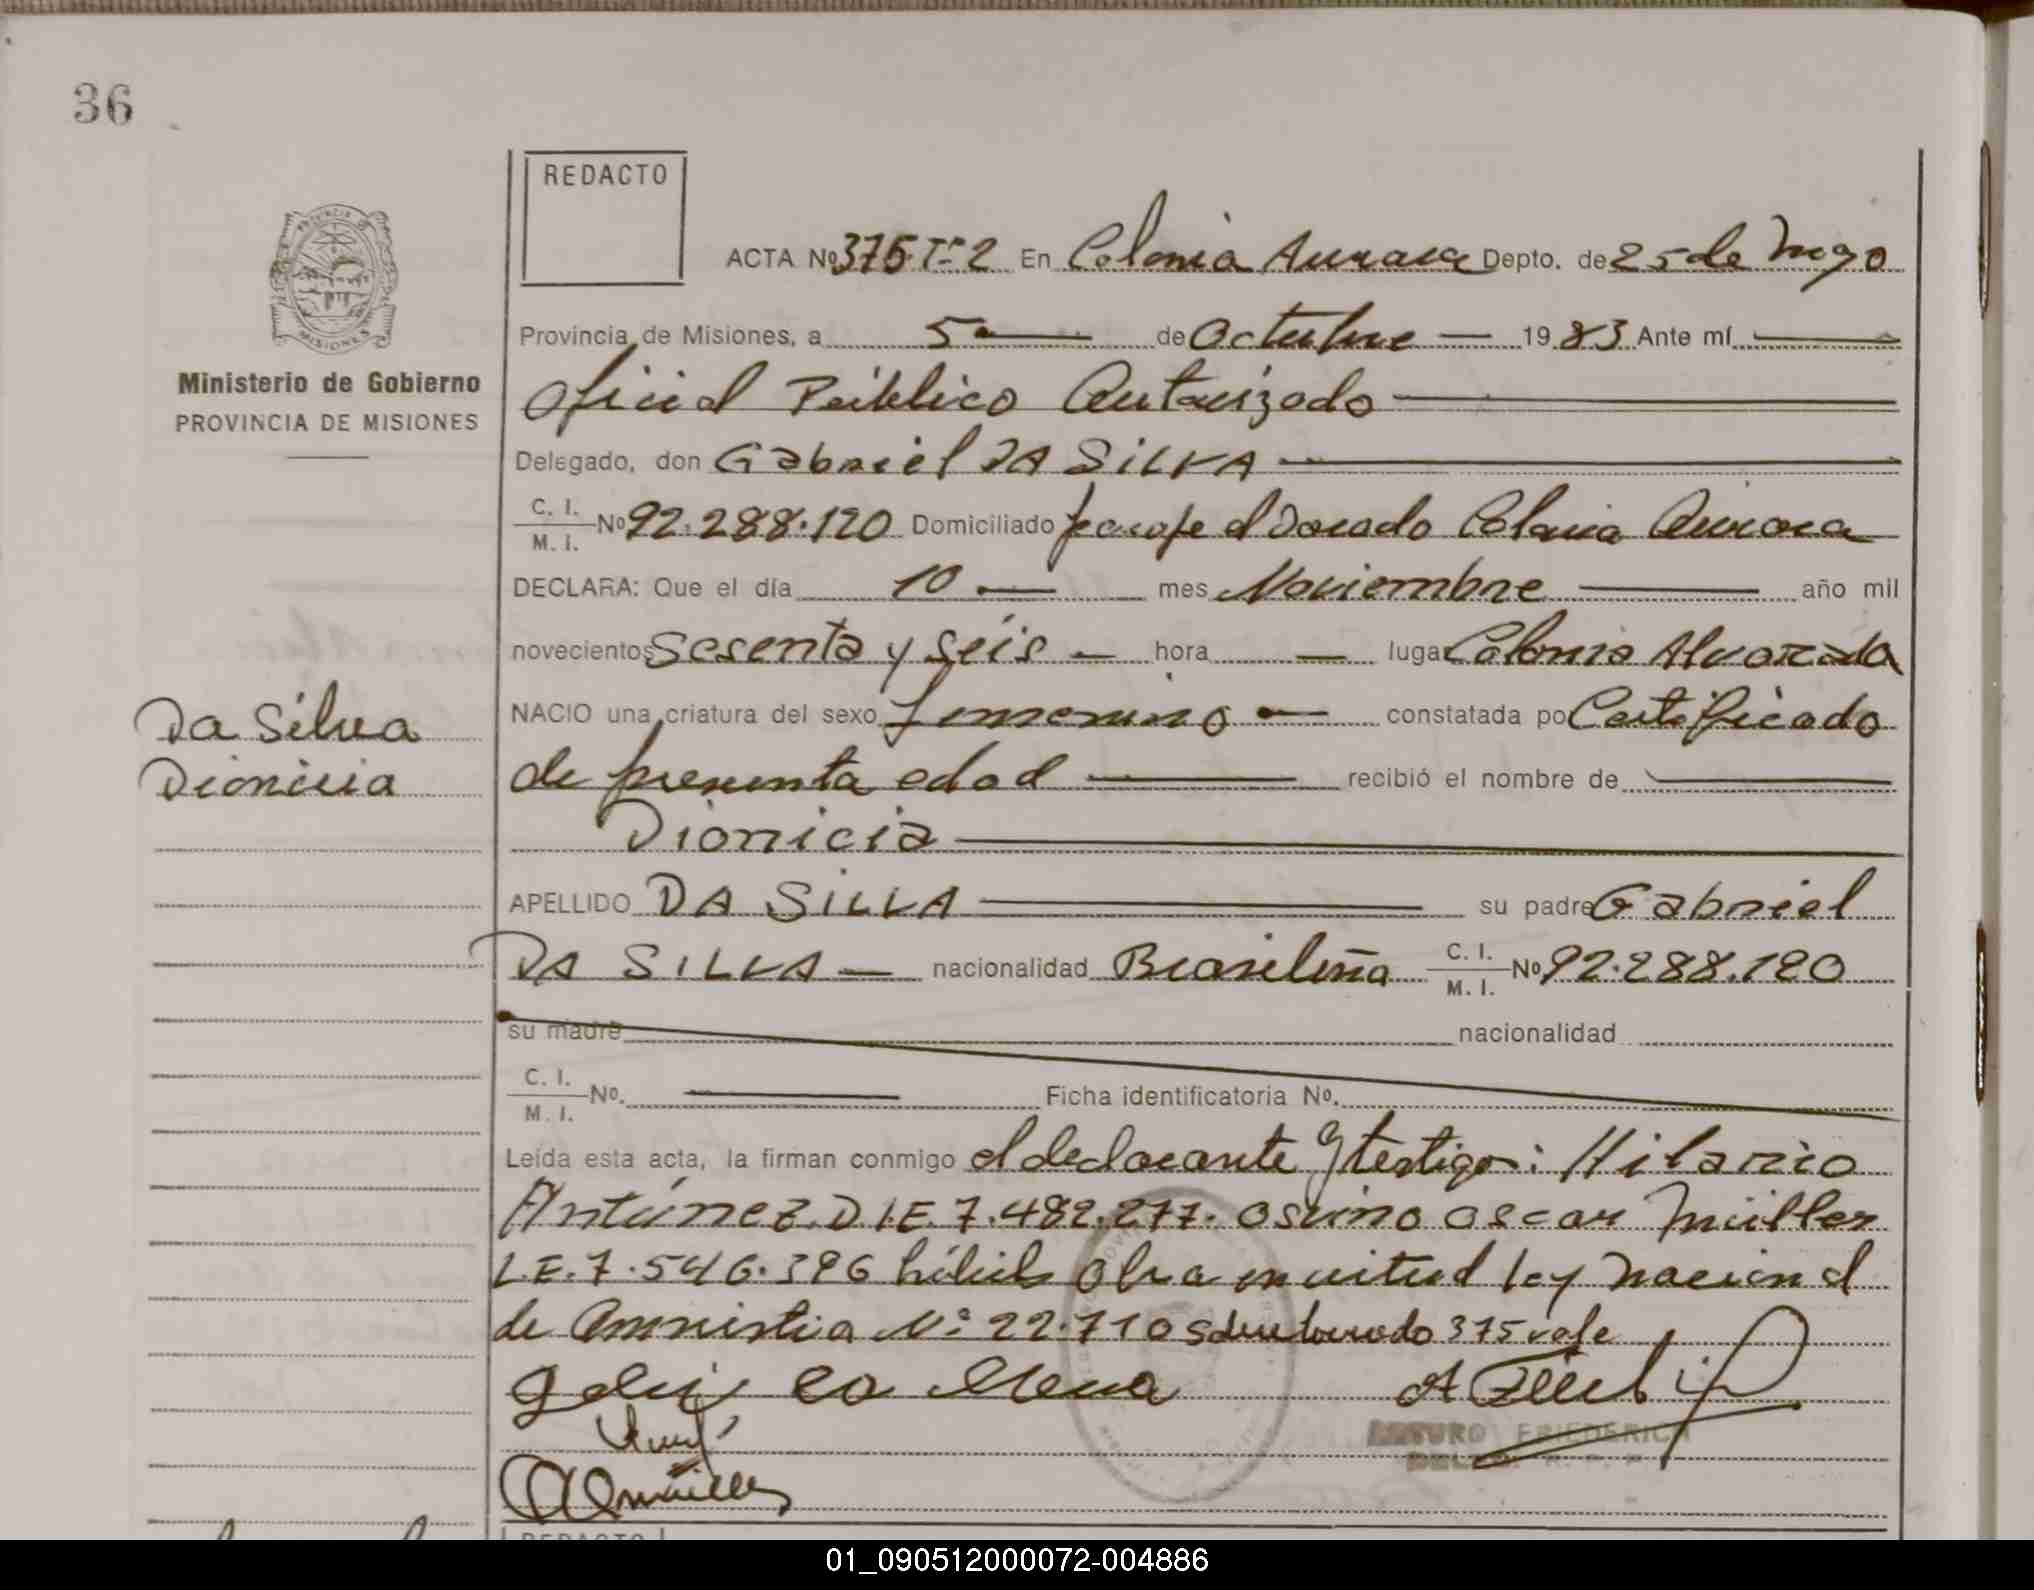 36
REDACTO
PROVINCIA DE MISIONES
ACTA Nº 375 Tº 2 En Colonia Aurora Depto. de 25 de Mayo
Provincia de Misiones, a 5 de Octubre 1983 Ante mí
Ministerio de Gobierno
PROVINCIA DE MISIONES
Oficial Público Autorizado
Delegado, don Gabriel DA SILVA
C. I. / M. I. Nº 92.288.120 Domiciliado el Dorado Colonia Aurora
DECLARA: Que el día 10 mes Noviembre año mil
novecientos Sesenta y Seis hora lugar Colonia Alvorada
NACIO una criatura del sexo femenino constatada por Certificado
Da Silva
Dionicia
de presunta edad recibió el nombre de
Dionicia
APELLIDO DA SILVA su padre Gabriel
DA SILVA nacionalidad Brasileña C. I. / M. I. Nº 92.288.120
su madre nacionalidad
C. I. / M. I. No. Ficha identificatoria No.
Leída esta acta, la firman conmigo el declarante y testigos: Hilario
Antúnez. D.I.E. 7.482.277. Oscar Müller
L.E. 7.546.396 hábiles Obra en vitud ley nacional
de Amnistia Nº 22.710 Sobreborrado 375 vale
ARTURO FRIEDERICH
REDACTO
01_090512000072-004886